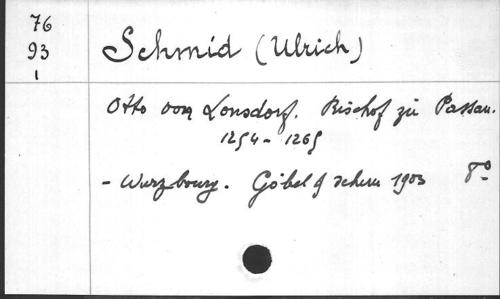 76
93
1
Schmid (Ulrich)
Otto von Lonsdorf. Bischof zu Passau.
1254 - 1265
- Wurzbourg. Göbel & Scherer 1903 8°